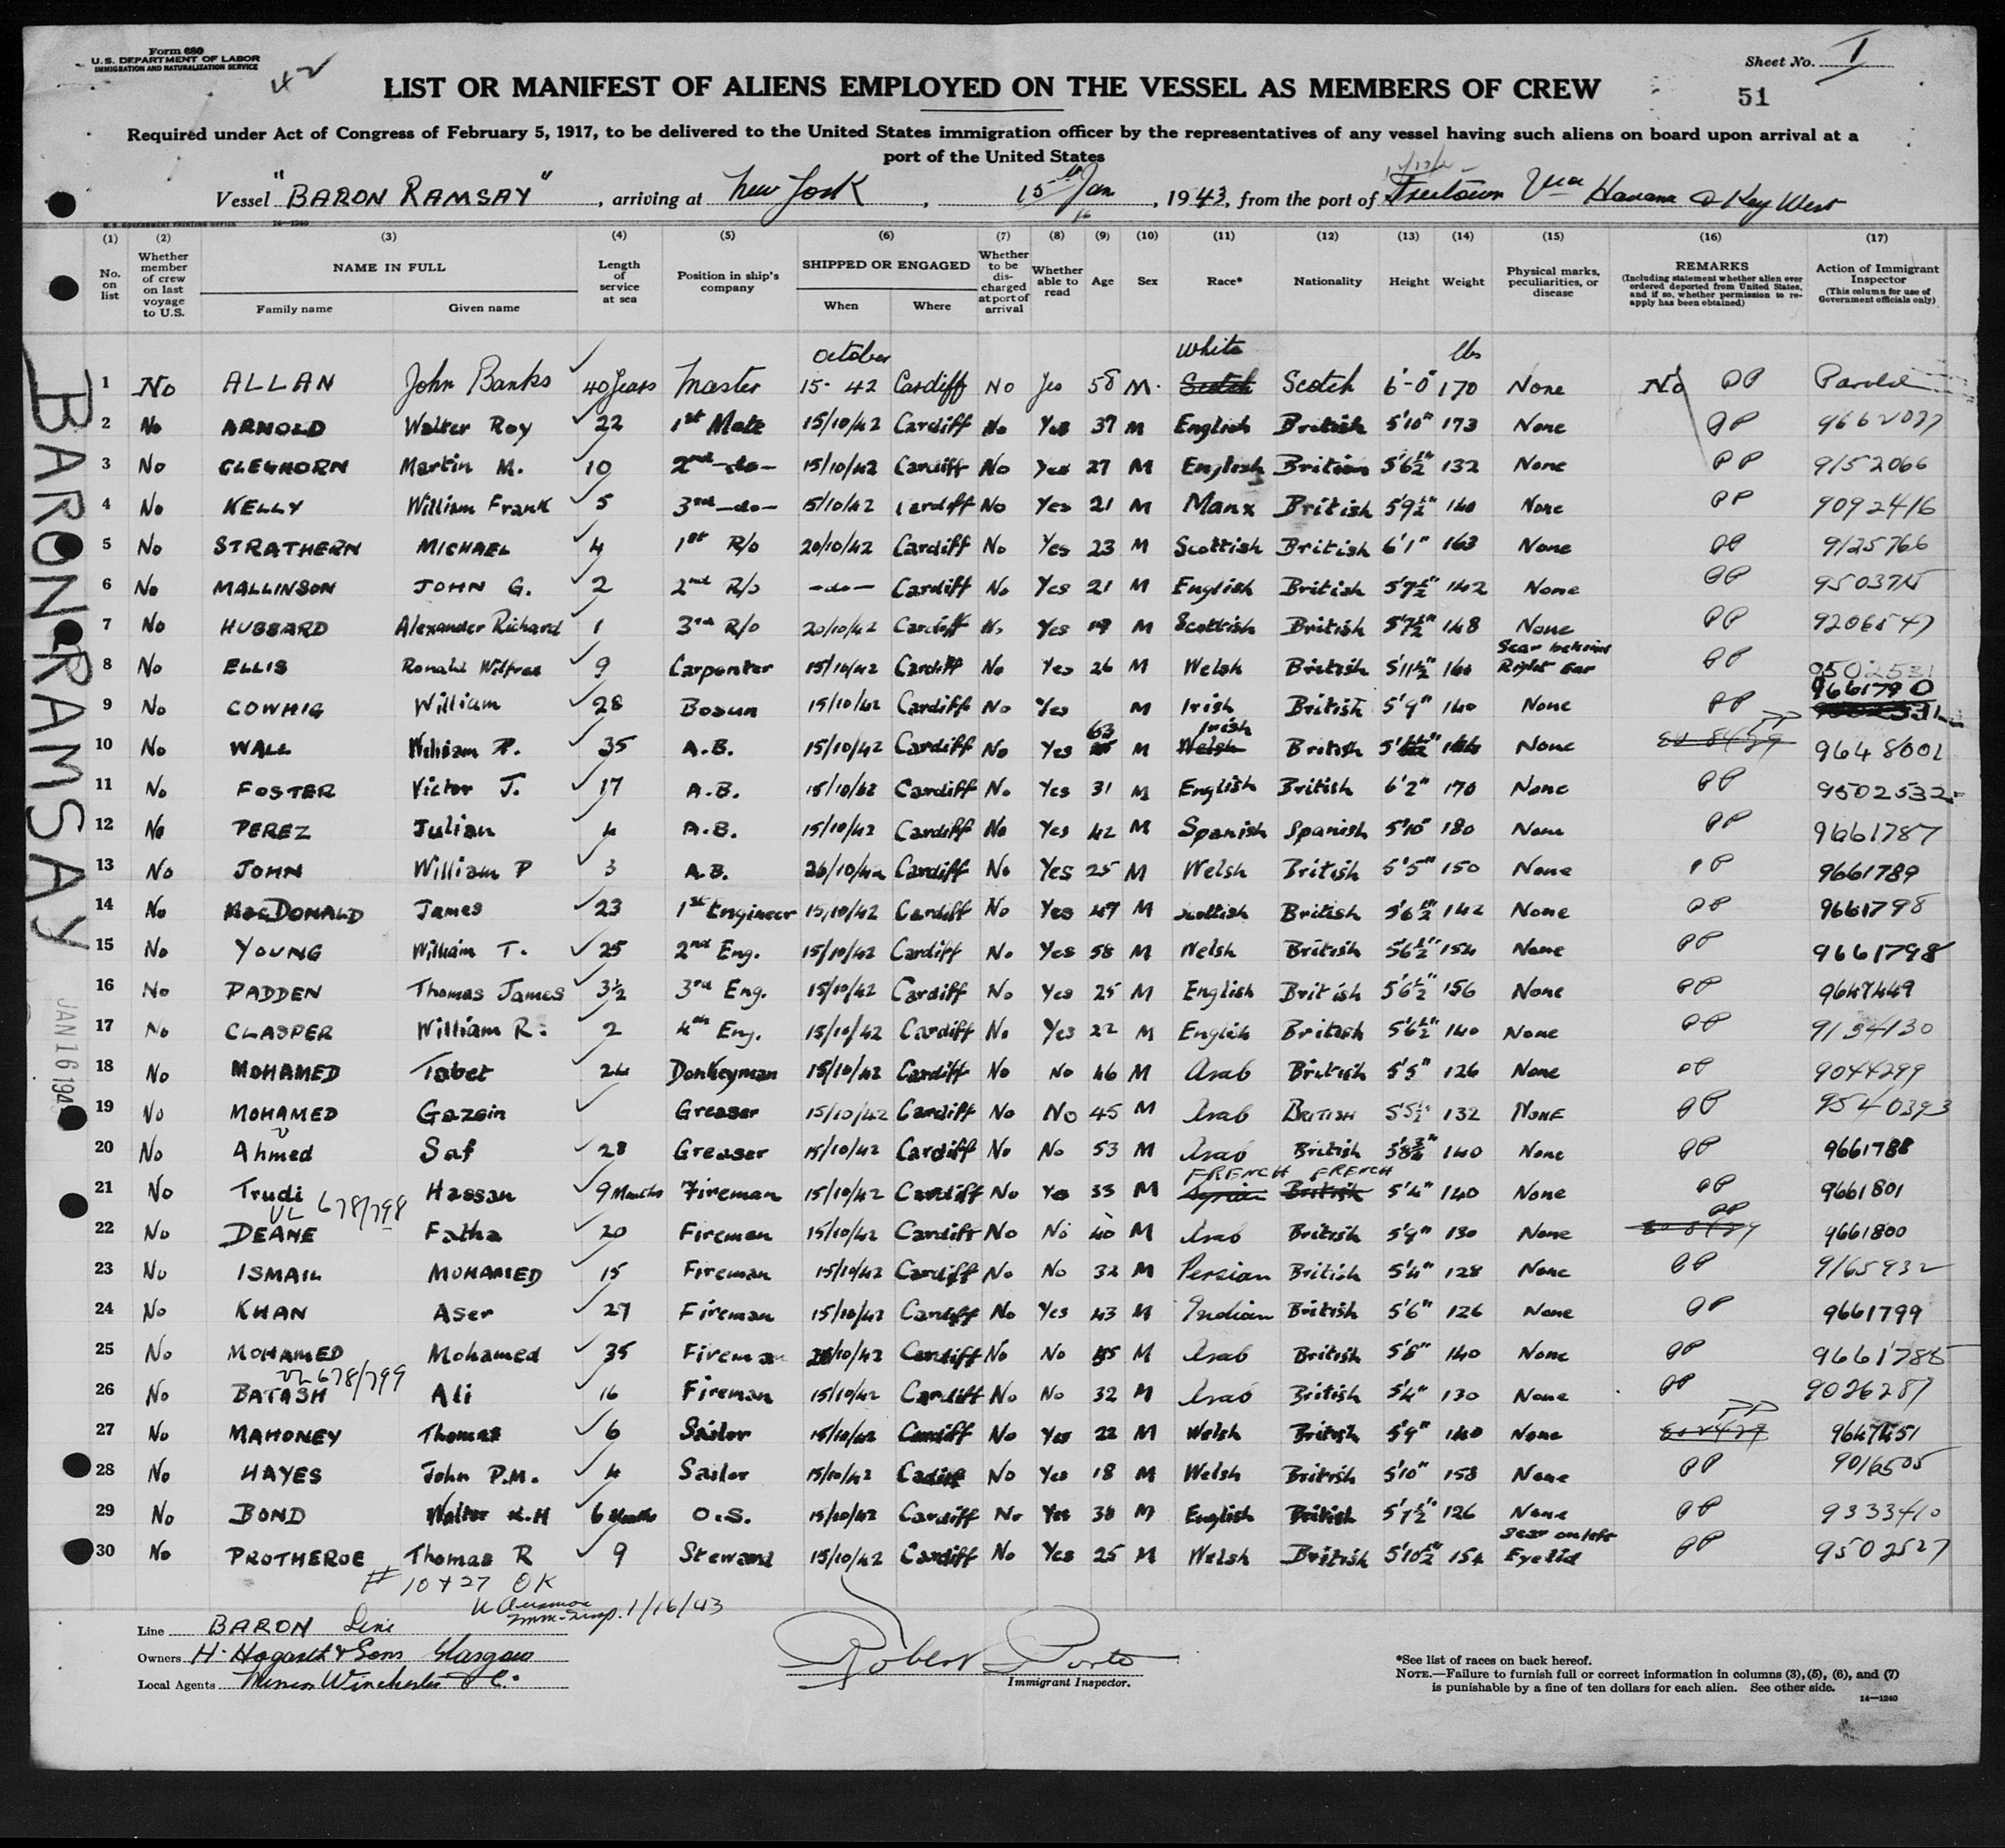 Form 680
U.S. DEPARTMENT OF LABOR
IMMIGRATION AND NATURALIZATION SERVICE
42
Sheet No. I
LIST OR MANIFEST OF ALIENS EMPLOYED ON THE VESSEL AS MEMBERS OF CREW
51
Required under Act of Congress of February 5, 1917, to be delivered to the United States immigration officer by the representatives of any vessel having such aliens on board upon arrival at a
port of the United States
Vessel "BARON RAMSAY", arriving at New York, 15th Jan, 1943, from the port of Freetown Via Havana & Key West
16
U.S. GOVERNMENT PRINTING OFFICE 14-1240
(1) (2) (3) (4) (5) (6) (7) (8) (9) (10) (11) (12) (13) (14) (15) (16) (17)
No. on list
Whether member of crew on last voyage to U.S.
NAME IN FULL
Family name Given name
Length of service at sea
Position in ship's company
SHIPPED OR ENGAGED
When Where
Whether to be discharged at port of arrival
Whether able to read
Age
Sex
Race*
Nationality
Height
Weight
Physical marks, peculiarities, or disease
REMARKS
(Including statement whether alien ever ordered deported from United States, and if so, whether permission to reapply has been obtained)
Action of Immigrant Inspector
(This column for use of Government officials only)
October White lbs
1 No ALLAN John Banks 40 years Master 15- 42 Cardiff No Yes 58 M. Scotch Scotch 6'-0" 170 None No PP Paroled
2 No ARNOLD Walter Roy 22 1st Mate 15/10/42 Cardiff No Yes 37 M English British 5'10" 173 None PP 9662037
3 No CLEGHORN Martin M. 10 2nd -do- 15/10/42 Cardiff No Yes 27 M English British 5'6½" 132 None PP 9152066
4 No KELLY William Frank 5 3rd -do- 15/10/42 Cardiff No Yes 21 M Manx British 5'9½" 140 None PP 9092416
5 No STRATHERN MICHAEL 4 1st R/o 20/10/42 Cardiff No Yes 23 M Scottish British 6'1" 163 None PP 9125766
6 No MALLINSON JOHN G. 2 2nd R/o -do- Cardiff No Yes 21 M English British 5'7½" 142 None PP
7 No HUBBARD Alexander Richard 1 3rd R/o 20/10/42 Cardiff No Yes 19 M Scottish British 5'7½" 148 None PP 9206547
8 No ELLIS Ronald Wilfred 9 Carpenter 15/10/42 Cardiff No Yes 26 M Welsh British 5'11½" 160 Scar behind Right Ear PP 9502531
9 No COWHIG William 28 Bosun 15/10/42 Cardiff No Yes M Irish British 5'9" 140 None PP 9661790 9502531
10 No WALL William P. 35 A.B. 15/10/42 Cardiff No Yes 63 M Welsh Irish British None PP 9648001
11 No FOSTER Victor J. 17 A.B. 15/10/42 Cardiff No Yes 31 M English British 6'2" 170 None PP 9502532
12 No PEREZ Julian 4 A.B. 15/10/42 Cardiff No Yes 42 M Spanish Spanish 5'10" 180 None PP 9661787
13 No JOHN William P 3 A.B. 26/10/42 Cardiff No Yes 25 M Welsh British 5'5" 150 None PP 9661789
14 No MacDONALD James 23 1st Engineer 15/10/42 Cardiff No Yes 47 M Scottish British 5'6½" 142 None PP 9661798
15 No YOUNG William T. 25 2nd Eng. 15/10/42 Cardiff No Yes 58 M Welsh British 5'6½" 154 None PP 9661798
16 No PADDEN Thomas James 3½ 3rd Eng. 15/10/42 Cardiff No Yes 25 M English British 5'6½" 156 None PP 9647449
17 No CLASPER William R. 2 4th Eng. 15/10/42 Cardiff No Yes 22 M English British 5'6½" 140 None PP 9134130
18 No MOHAMED Tabet 24 Donkeyman 15/10/42 Cardiff No No 46 M Arab British 5'5" 126 None PP 9044299
19 No MOHAMED Gazein Greaser 15/10/42 Cardiff No No 45 M Arab BRITISH 5'5½" 132 NONE PP 9540393
20 No Ahmed Saf 28 Greaser 15/10/42 Cardiff No No 53 M Arab British 5'8¾" 140 None PP 9661788
FRENCH FRENCH
21 No Trudi Hassan 9 Months Fireman 15/10/42 Cardiff No Yes 33 M Syrian British 5'4" 140 None PP 9661801
VL 678/798
22 No DEANE Fatha 20 Fireman 15/10/42 Cardiff No No 40 M Arab British 5'9" 130 None PP 9661800
23 No ISMAIL MOHAMED 15 Fireman 15/10/42 Cardiff No No 32 M Persian British 5'4" 128 None PP 9165932
24 No KHAN Aser 27 Fireman 15/10/42 Cardiff No Yes 43 M Indian British 5'6" 126 None PP 9661799
25 No MOHAMED Mohamed 35 Fireman 20/10/42 Cardiff No No 45 M Arab British 5'8" 140 None PP 9661785
VL 678/799
26 No BATASH Ali 16 Fireman 15/10/42 Cardiff No No 32 M Arab British 5'4" 130 None PP 9026287
27 No MAHONEY Thomas 6 Sailor 15/10/42 Cardiff No Yes 22 M Welsh British 5'9" 140 None PP 9647451
28 No HAYES John P.M. 4 Sailor 15/10/42 Cardiff No Yes 18 M Welsh British 5'10" 158 None PP 9016505
29 No BOND Walter K.H 6 Months O.S. 15/10/42 Cardiff No Yes 38 M English British 5'7½" 126 None PP 9333410
30 No PROTHEROE Thomas R 9 Steward 15/10/42 Cardiff No Yes 25 M Welsh British 5'10½" 154 Scar on left Eyelid PP 9502527
# 10 + 27 OK
Imm-Insp. 1/16/43
BARON RAMSAY
JAN 16 194
Line BARON Line
Owners H. Hogarth & Sons Glasgow
Local Agents Winchester
Robert Porto
Immigrant Inspector.
*See list of races on back hereof.
NOTE.—Failure to furnish full or correct information in columns (3), (5), (6), and (7)
is punishable by a fine of ten dollars for each alien. See other side.
14—1240